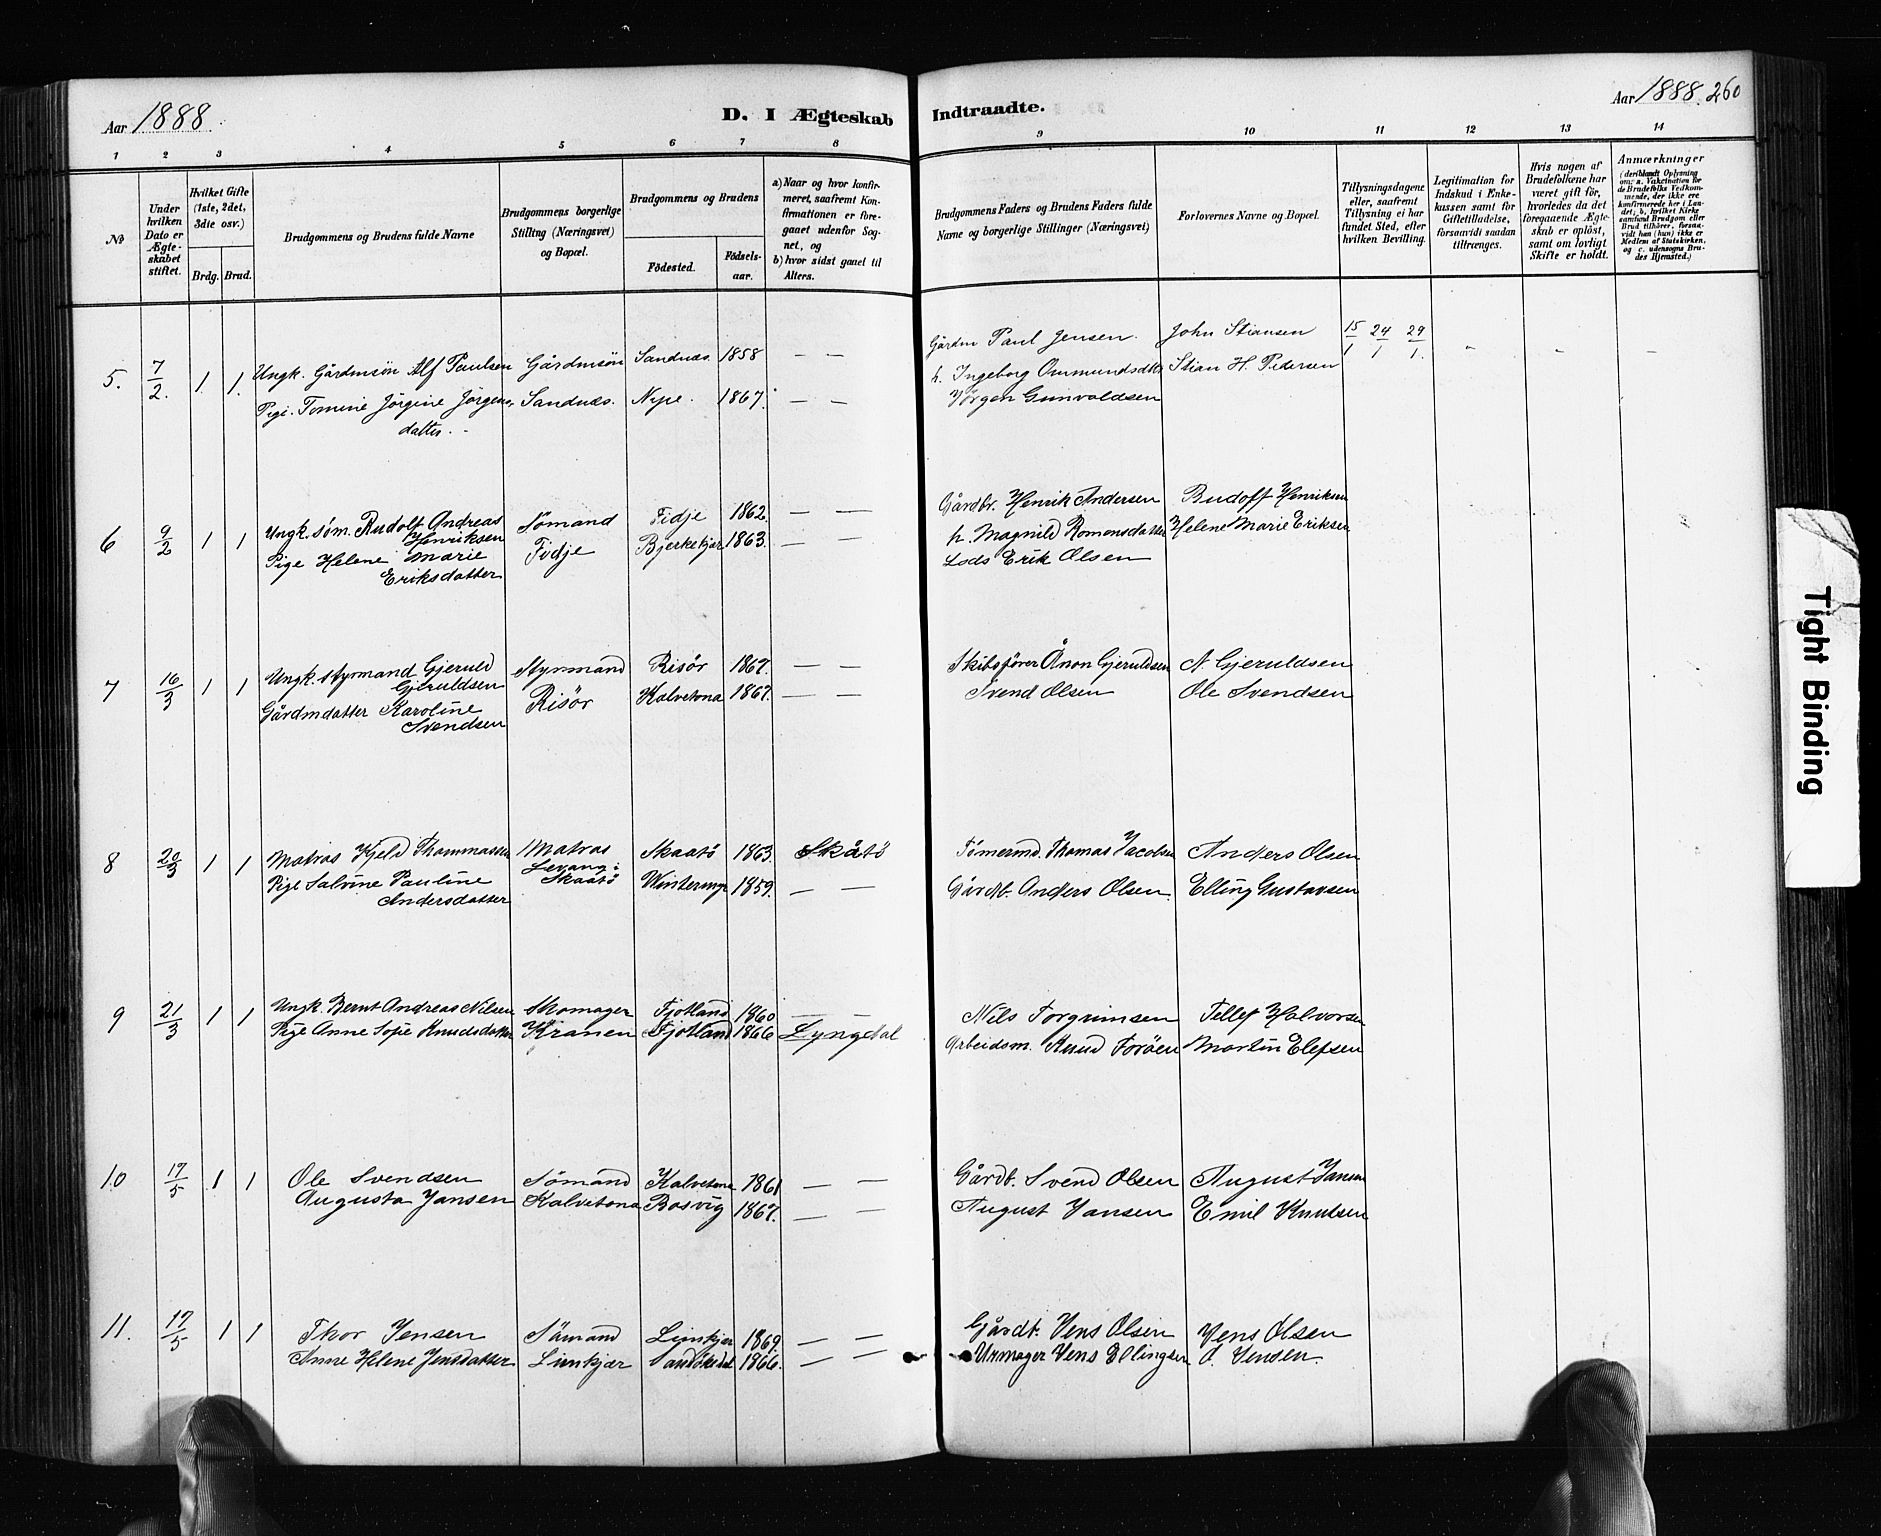 Aar 1888.
D. I Ægteskab Indtraadte.
Aar 1888. 260
1 2 3 4 5 6 7 8 9 10 11 12 13 14
No
Under hvilken Dato er Ægteskabet stiftet.
Hvilket Gifte (1ste, 2det, 3die osv.)
Brdg. Brud.
Brudgommens og Brudens fulde Navne
Brudgommens borgerlige Stilling (Næringsvei) og Bopæl.
Brudgommens og Brudens
Födested.
Födsels-aar.
a) Naar og hvor konfirmeret, saafremt Konfirmationen er foregaaet udenfor Sognet, og
b) hvor sidst gaaet til Alters.
Brudgommens Faders og Brudens Faders fulde Navne og borgerlige Stillinger (Næringsvei)
Forlovernes Navne og Bopæl.
Tillysningsdagene eller, saafremt Tillysning ei har fundet Sted, efter hvilken Bevilling.
Legitimation for Indskud i Enkekassen samt for Giftetilladelse, forsaavidt saadan tiltrænges.
Hvis nogen af Brudefolkene har været gift för, hvorledes da det foregaaende Ægteskab er oplöst, samt om lovligt Skifte er holdt.
Anmærkninger
(deriblandt Oplysning om: a. Vakcination for de Brudefolks Vedkommende, der ikke ere konfirmerede her i Landet; b, hvilket Kirkesamfund Brudgom eller Brud tilhörer, forsaavidt han (hun) ikke er Medlem af Statskirken, og c. udensogns Brudes Hjemsted.)
5. 7/2. 1. 1. Ungk. Gårdmsön Alf Paulsen Gårdmsön Sandnæs. 1858 — — Gårdm Paul Jensen. John Stiansen 15/1 24/1 29/1.
h. Ingeborg Ommundsdtr Stian H. Pedersen
Pige. Tomine Jörgine Jörgens, Sandnæs. Nipe. 1867. — — Jörgen Gunvaldsen
datter.
6 9/2 1 1 Ungk. söm. Rudolf Andreas Sömand Fidje 1862. — — Gårdbr. Henrik Andersen Rudolf Henriksen
Henriksen
h. Magnild Romonsdatter Helene Marie Eriksen
Pige Helene Marie Fidje Bjerkekjær 1863. — — Lods Erik Olsen
Eriksdatter
7 16/3 1 1 Ungk. Styrmand Gjeruld Styrmand Risör 1867. — — Skibsförer Ånon Gjeruldsen N Gjeruldsen
Gjeruldsen
Gårdmdatter Karoline Risör Kalvetona 1867. — — Svend Olsen Ole Svendsen
Svendsen
8 20/3 1 1 Matros Kjeld Thommassen Matros Skaatö 1863. Skåtö Tömermd. Thomas Jacobsen Anders Olsen
Levang i
Pige Salvine Pauline Skaatö Vintermyr 1859. — — Gårdb. Anders Olsen. Elling Gustavsen
Andersdatter
9 21/3 1 1 Ungk. Bernt Andreas Nilsen Skomager Fjotland 1860 — — Nils Torgrimsen Tellef Halvorsen
Pige Anne Sofie Knudsdatter Kranen Fjotland 1866 Lyngdal Arbeidsm. Knud Foröen Martin Elefsen
10 17/5 1 1 Ole Svendsen Sömand Kalvetona 1861 — — Gårdb. Svend Olsen August Jansen
Augusta Jansen Kalvetona Bosvig 1867. — — August Jansen Emil Knutsen
11. 17/5 1 1 Thor Jensen Sömand Limkjær 1869. — — Gårdb. Jens Olsen Jens Olsen
Anne Helene Jensdatter Limkjær Sandökedal 1866. — — Urmager Jens Ellingsen O. Jensen.
Tight Binding